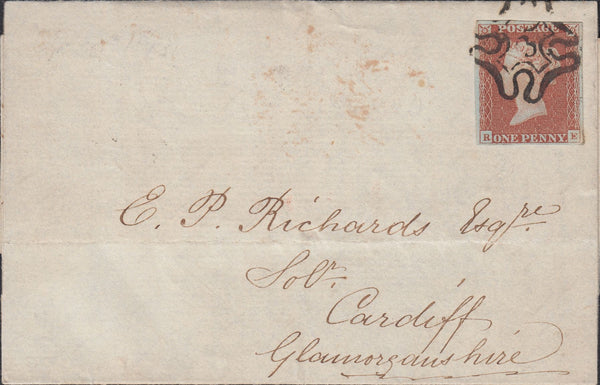 POSTAGE
3
R ONE PENNY E
E. P. Richards Esqre
Solr.
Cardiff
Glamorganshire